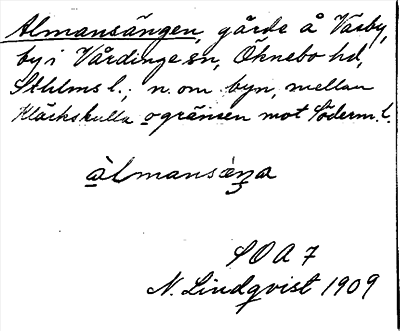 Almansängen, gärde å Väsby,
by i Vårdinge sn, Öknebo hd,
Sthlms l.; n. om byn, mellan
Kläckskulla o gränsen mot Söderm. l.
àlmansàŋa
SOA 7
N. Lindqvist 1909